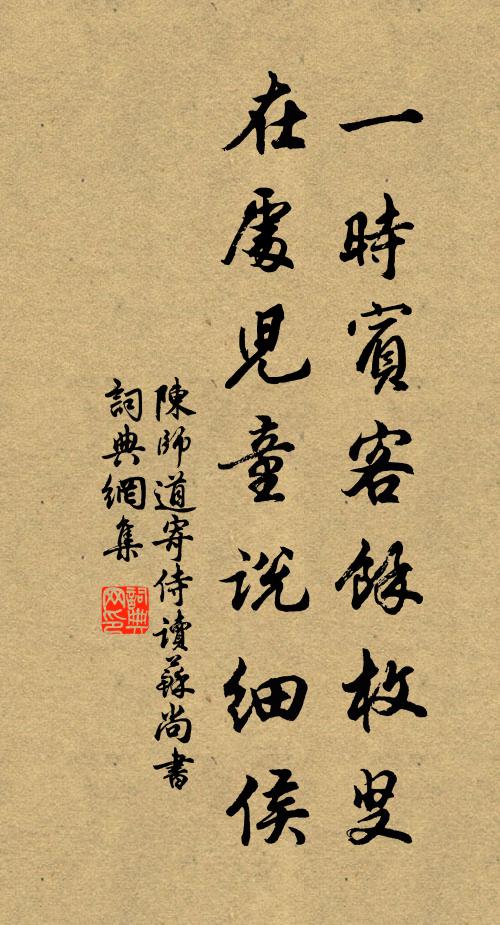 一時賓客餘枚叟
在處兒童說細侯
陳師道寄侍讀蘇尚書
詞典網集
詞典网印